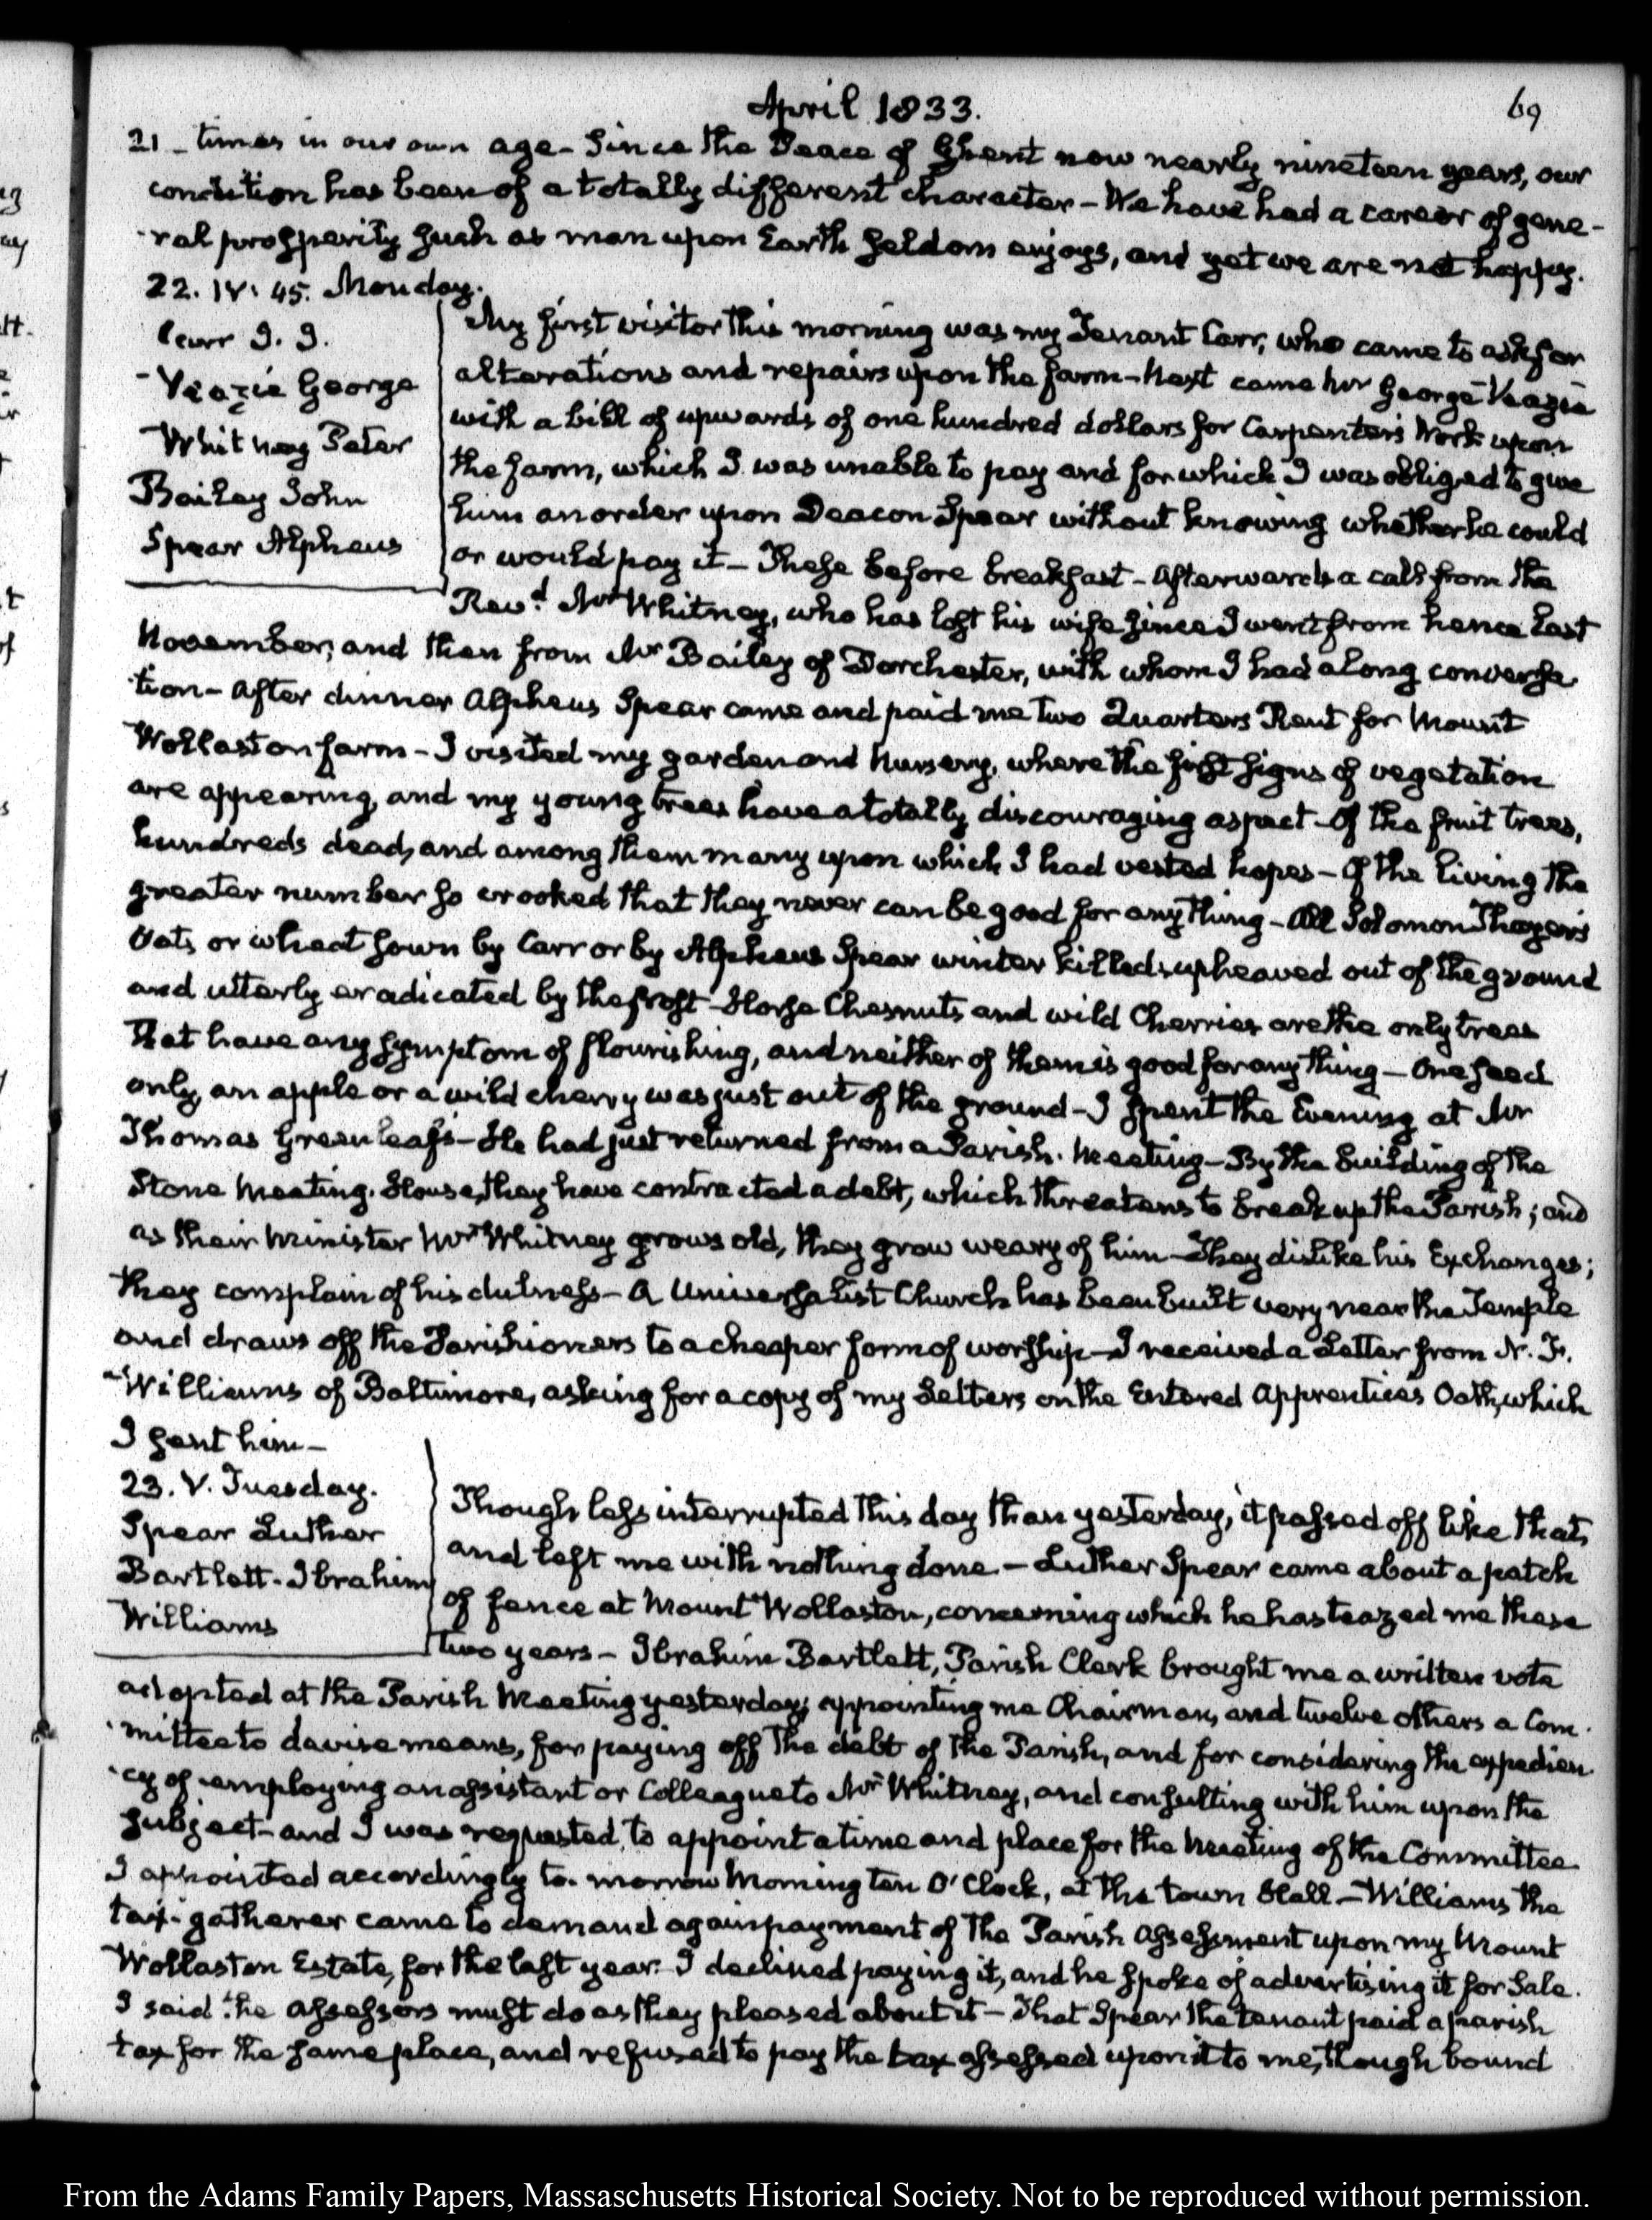 April 1833.
69
21 - times in our own age - Since the Peace of Ghent now nearly nineteen years, our
condition has been of a totally different character - We have had a career of gene-
-ral prosperity such as man upon Earth seldom enjoys, and yet we are not happy.
22. IV: 45. Monday.
Carr J. J.
Veazie George
Whitney Peter
Bailey John
Spear Alpheus
My first visitor this morning was my Tenant Carr, who came to ask for
alterations and repairs upon the farm - Next came Mr George Veazie
with a bill of upwards of one hundred dollars for Carpenter's Work upon
the farm, which I was unable to pay and for which I was obliged to give
him an order upon Deacon Spear without knowing whether he could
or would pay it - These before breakfast - Afterwards a call from the
Revd. Mr Whitney, who has lost his wife since I went from hence last
November, and then from Mr Bailey of Dorchester, with whom I had a long conversa-
tion - After dinner Alpheus Spear came and paid me two Quarters Rent for Mount
Wollaston farm - I visited my garden and Nursery, where the first signs of vegetation
are appearing, and my young trees have a totally discouraging aspect - Of the fruit trees,
hundreds dead, and among them many upon which I had vested hopes - Of the living the
greater number so crooked that they never can be good for any thing - All Solomon Thayer's
Oats or wheat sown by Carr or by Alpheus Spear winter killed, upheaved out of the ground
and utterly eradicated by the frost - Horse Chesnuts and wild Cherries are the only trees
that have any symptom of flourishing, and neither of them is good for any thing - One seed
only, an apple or a wild cherry was just out of the ground - I spent the Evening at Mr
Thomas Greenleaf's - He had just returned from a Parish Meeting - By the building of the
Stone Meeting-House, they have contracted a debt, which threatens to break up the Parish; and
as their Minister Mr Whitney grows old, they grow weary of him - They dislike his Exchanges;
they complain of his dulness - A Universalist Church has been built very near the Temple
and draws off the Parishioners to a cheaper form of worship - I received a Letter from N. F.
Williams of Baltimore, asking for a copy of my Letters on the Entered Apprentices Oath, which
I sent him -
23. V. Tuesday.
Spear Luther
Bartlett - Ibrahim
Williams
Though less interrupted this day than yesterday, it passed off like that,
and left me with nothing done - Luther Spear came about a patch
of fence at Mount Wollaston, concerning which he has teazed me these
two years - Ibrahim Bartlett, Parish Clerk brought me a written vote
adopted at the Parish Meeting yesterday, appointing me Chairman, and twelve others a Com-
-mittee to devise means, for paying off the debt of the Parish, and for considering the expedien-
-cy of employing an assistant or Colleague to Mr Whitney, and consulting with him upon the
subject - and I was requested to appoint a time and place for the Meeting of the Committee
I appointed accordingly to-morrow Morning ten O'Clock, at the town Hall - Williams the
tax-gatherer came to demand again payment of the Parish assessment upon my Mount
Wollaston Estate, for the last year. I declined paying it, and he spoke of advertising it for Sale.
I said the assessors must do as they pleased about it - That Spear the tenant paid a parish
tax for the same place, and refused to pay the tax assessed upon it to me, though bound
From the Adams Family Papers, Massachusetts Historical Society. Not to be reproduced without permission.